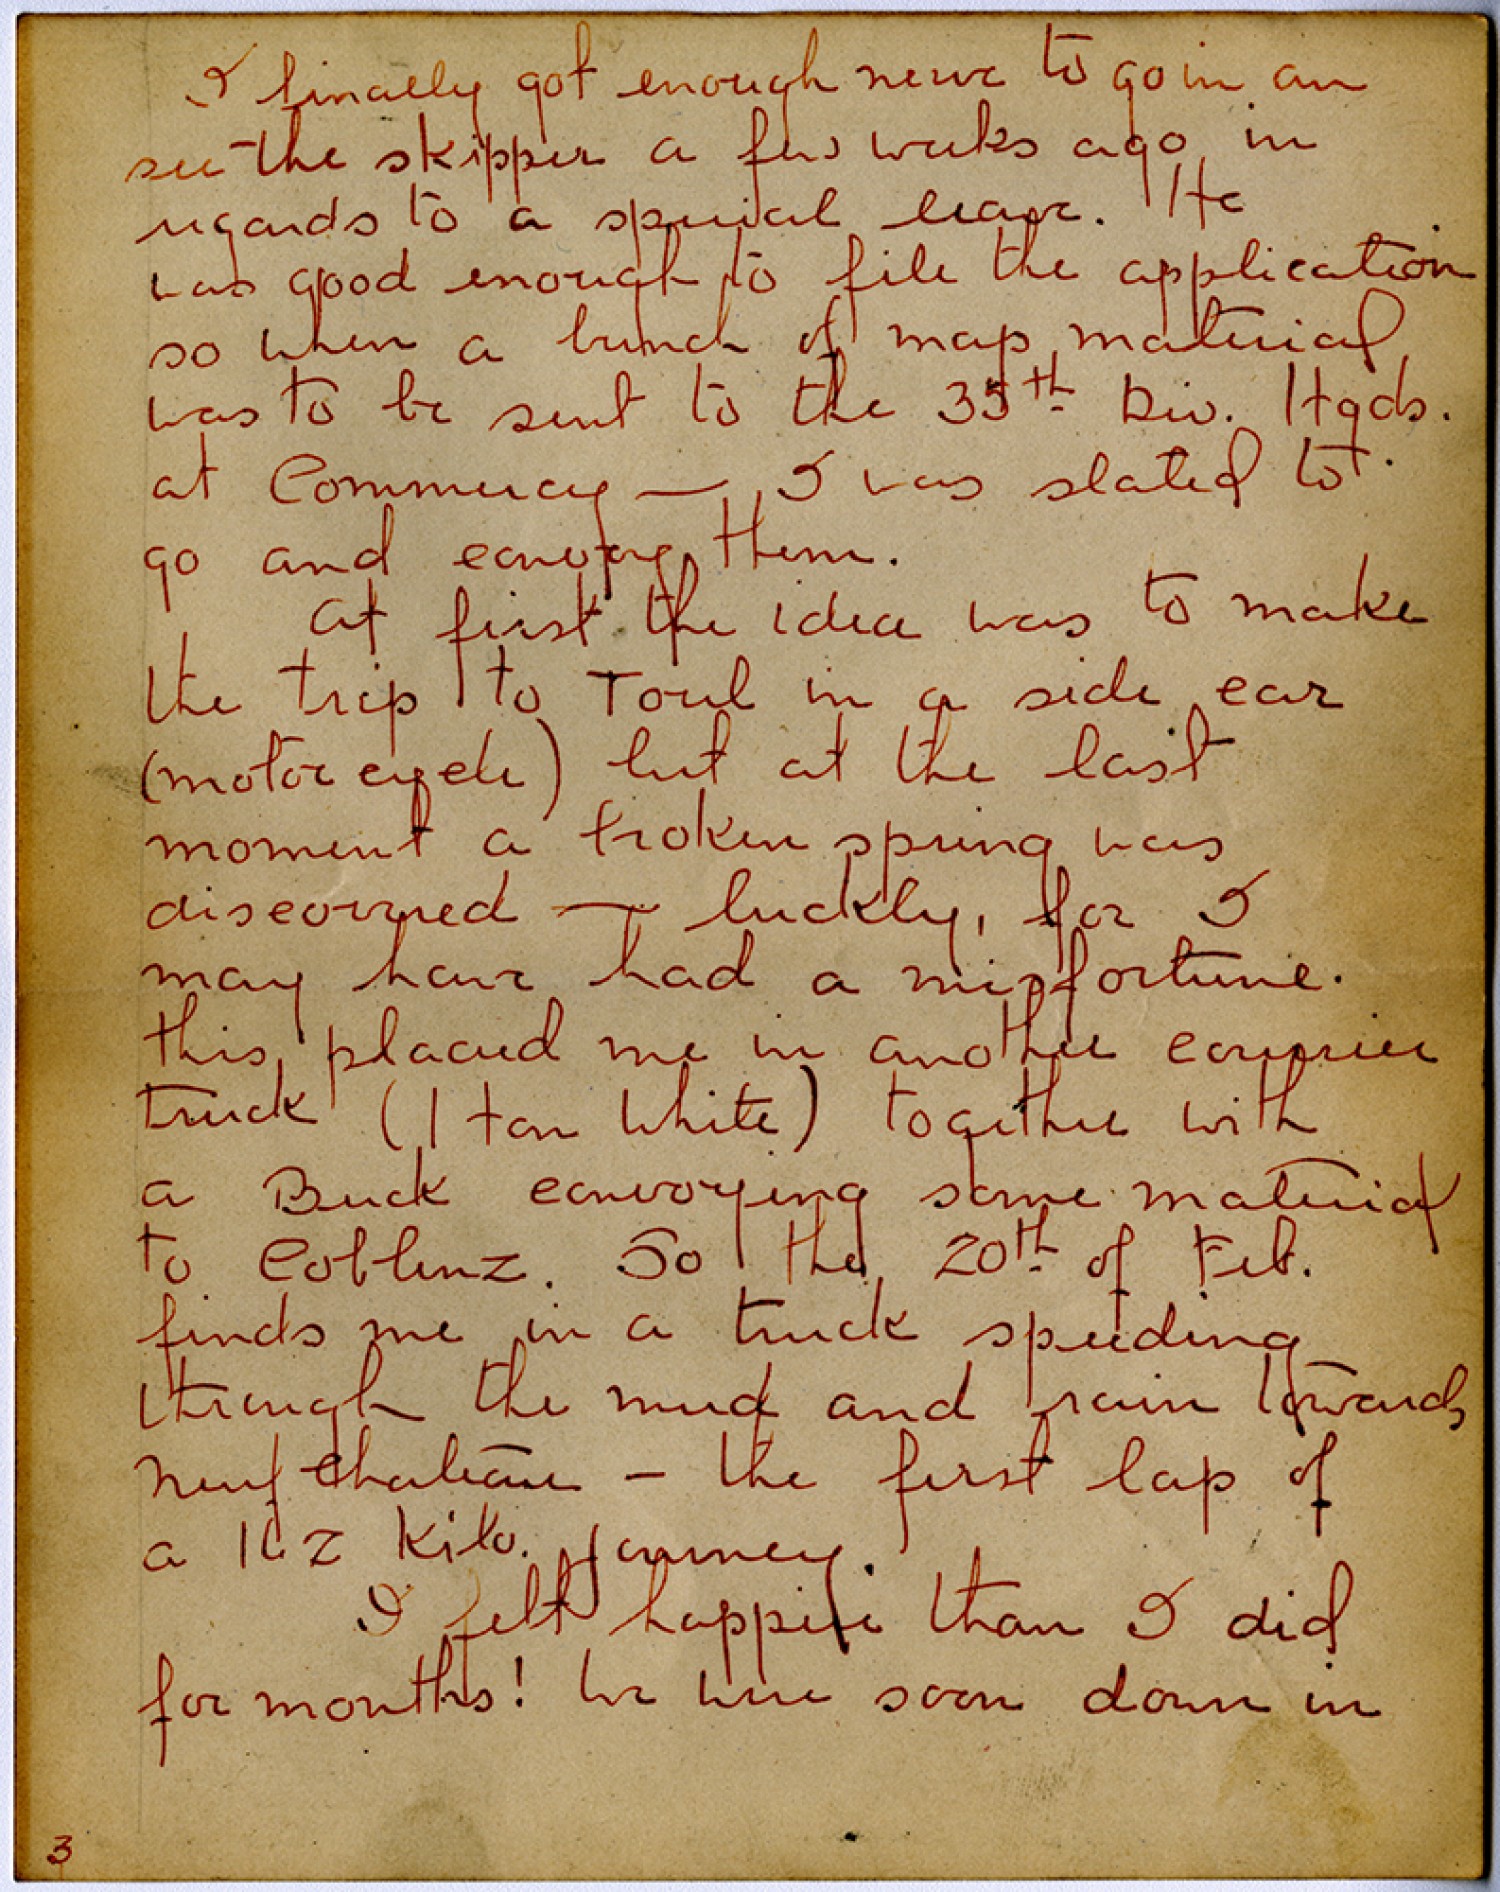 I finally got enough nerve to go in an
see the skipper a few weeks ago in
regards to a special leave. He
was good enough to file the application
so when a bunch of map material
was to be sent to the 35th Div. Hqds.
at Commercy — I was slated to
go and convoy them.
At first the idea was to make
the trip to Toul in a side car
(motorcycle) but at the last
moment a broken spring was
discovered — luckly, for I
may have had a misfortune.
This placed me in another courrier
truck (1 ton White) together with
a Buck convoying some material
to Coblenz. So the 20th of Feb.
finds me in a truck speeding
through the mud and rain towards
Neufchateau — the first lap of
a Kilo. journey.
I felt happier than I did
for months! We were soon down in
3